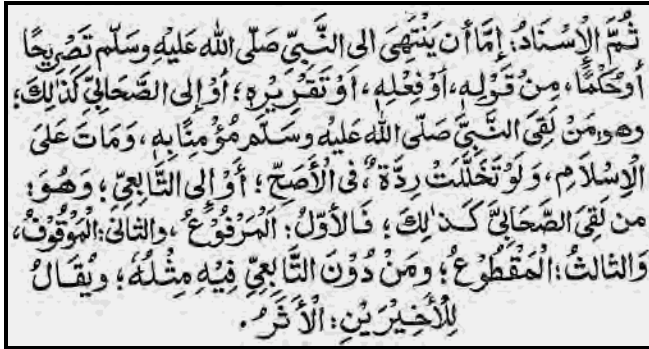 ثُمَّ الْإِسْنَادُ: إِمَّا أَن يَنْتَهِىَ الى النَّبِيِّ صَلَّى اللهُ عَلَيْهِ وَسَلَّم تَصْرِيْحًا
أَوْحُكْمًا، مِنْ قَوْلِهِ، اَوْفِعْلِهِ، اَوْ تَقْرِيْرِهٖ؛ أَوْ إلى الصَّحَابِيِّ كَذٰلِكَ؛
وهو: مَنْ لَقِىَ النَّبِيَّ صَلَّى اللهُ عَلَيْهِ وسَلَّمَ مُؤْمِنًا بِهٖ، وَمَاتَ عَلىَ
الْإِسْلَامِ، وَلَوْ تَخَلَّلَتْ رِدَّةٌ، فى الْأَصَحِّ؛ أَوْ إِلى التَّابِعِيِّ؛ وَهُوَ:
من لَقِىَ الصَّحَابِيَّ كَذٰلِكَ؛ فَالأَوَّلُ: اَلْمَرْفُوْعُ، والثانى: الْمَوْقُوْفُ،
وَالثالثُ: الْمَقْطُوْعُ؛ ومَنْ دُوْنَ التَّابِعِيِّ فِيْهِ مِثْلُهٗ؛ ويُقَالُ
لِلْأَخِيْرَيْنِ: الْأَثَرُ.